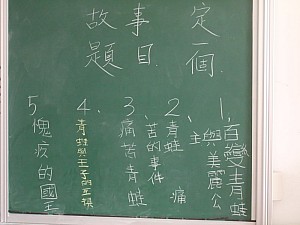 定一個
故事
題目
1、百變青蛙
與美麗公
主
2、青蛙痛
苦的事件
3、痛苦青蛙
4、青蛙與王子的互換
5、愧疚的國王